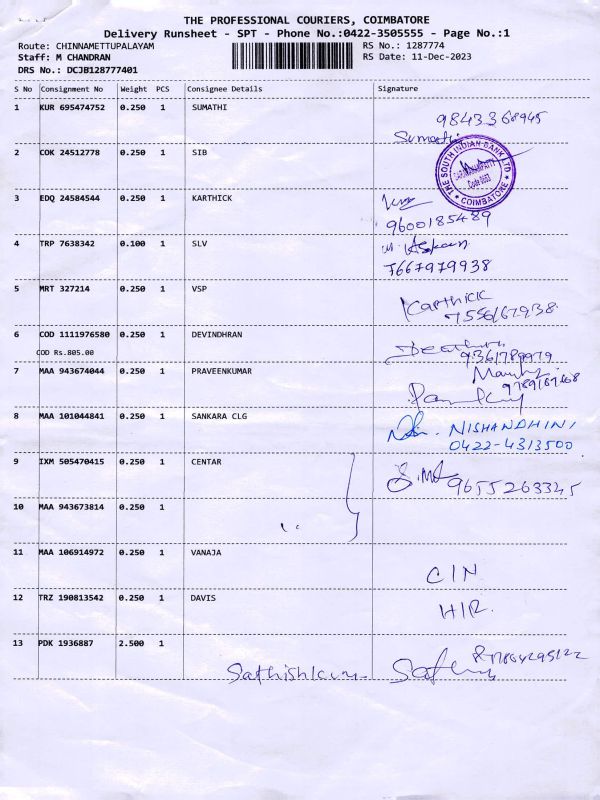 THE PROFESSIONAL COURIERS, COIMBATORE
Delivery Runsheet - SPT - Phone No.:0422-3505555 - Page No.:1
Route: CHINNAMETTUPALAYAM RS No.: 1287774
Staff: M CHANDRAN RS Date: 11-Dec-2023
DRS No.: DCJB128777401
S No Consignment No Weight PCS Consignee Details Signature
1 KUR 695474752 0.250 1 SUMATHI
9843368945
Sumathi
2 COK 24512778 0.250 1 SIB
THE SOUTH INDIAN BANK LTD
COIMBATORE
3 EDQ 24584544 0.250 1 KARTHICK
9600185489
4 TRP 7638342 0.100 1 SLV
7667979938
5 MRT 327214 0.250 1 VSP
KARTHICK
7556167938
6 COD 1111976580 0.250 1 DEVINDHRAN
COD Rs.805.00
9361789979
7 MAA 943674044 0.250 1 PRAVEENKUMAR
8 MAA 101044841 0.250 1 SANKARA CLG
NISHANDHINI
0422-4313500
9 IXM 505470415 0.250 1 CENTAR
9655263345
10 MAA 943673814 0.250 1
11 MAA 106914972 0.250 1 VANAJA
CIN
12 TRZ 190813542 0.250 1 DAVIS
HIR.
13 PDK 1936887 2.500 1
Sathishkumar